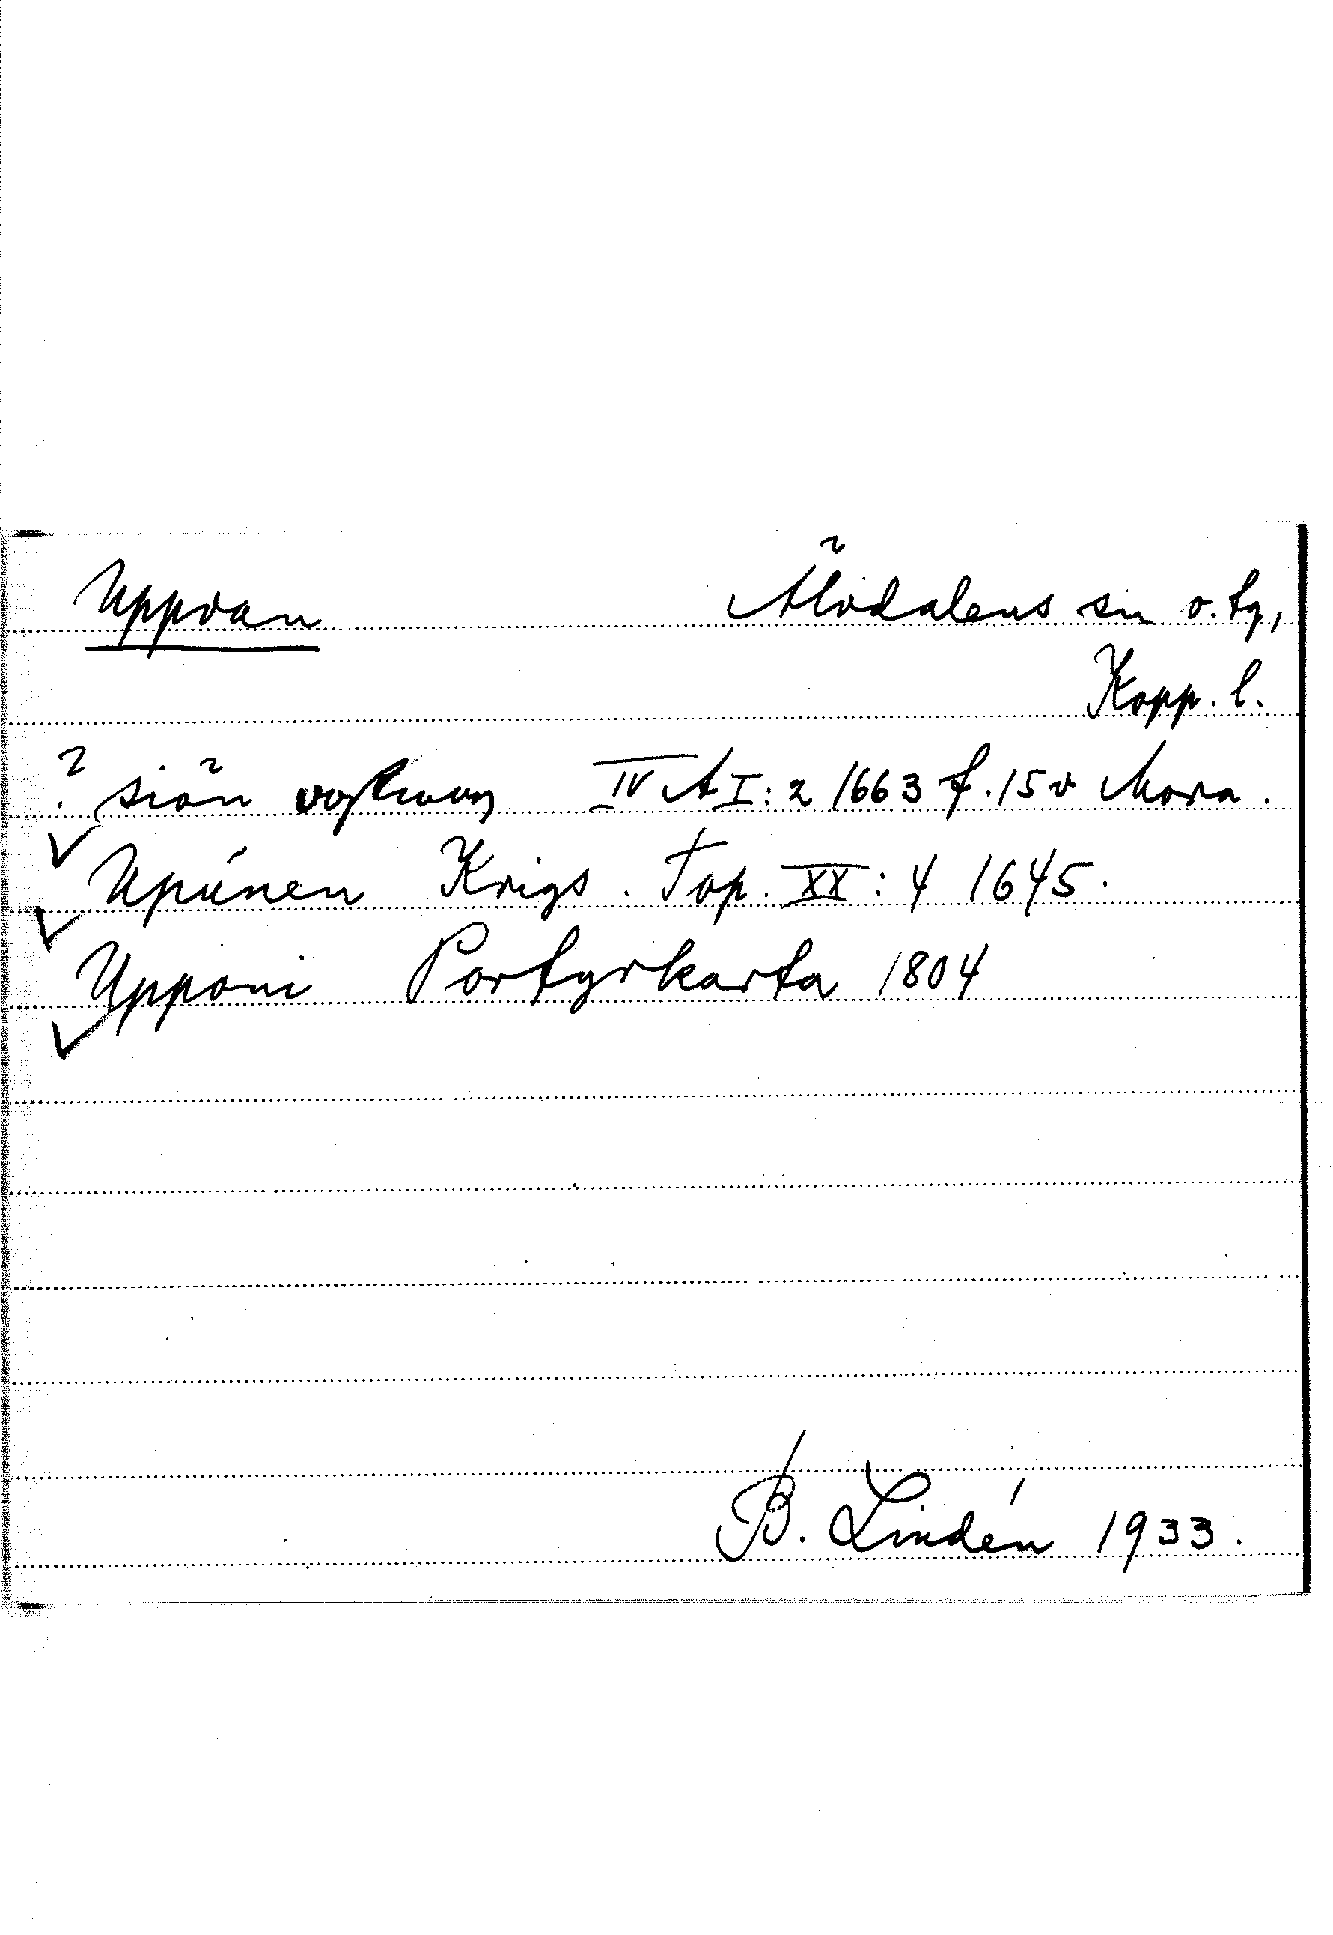 Uppoan Älvdalens sn o. tg,
Kopp. l.
? siön IV A I: 2 1663 f. 15 v Mora.
Upúnen Krigs. Top. XX: 4 1645.
Upponi Porfyrkarta 1804
B. Lindén 1933.